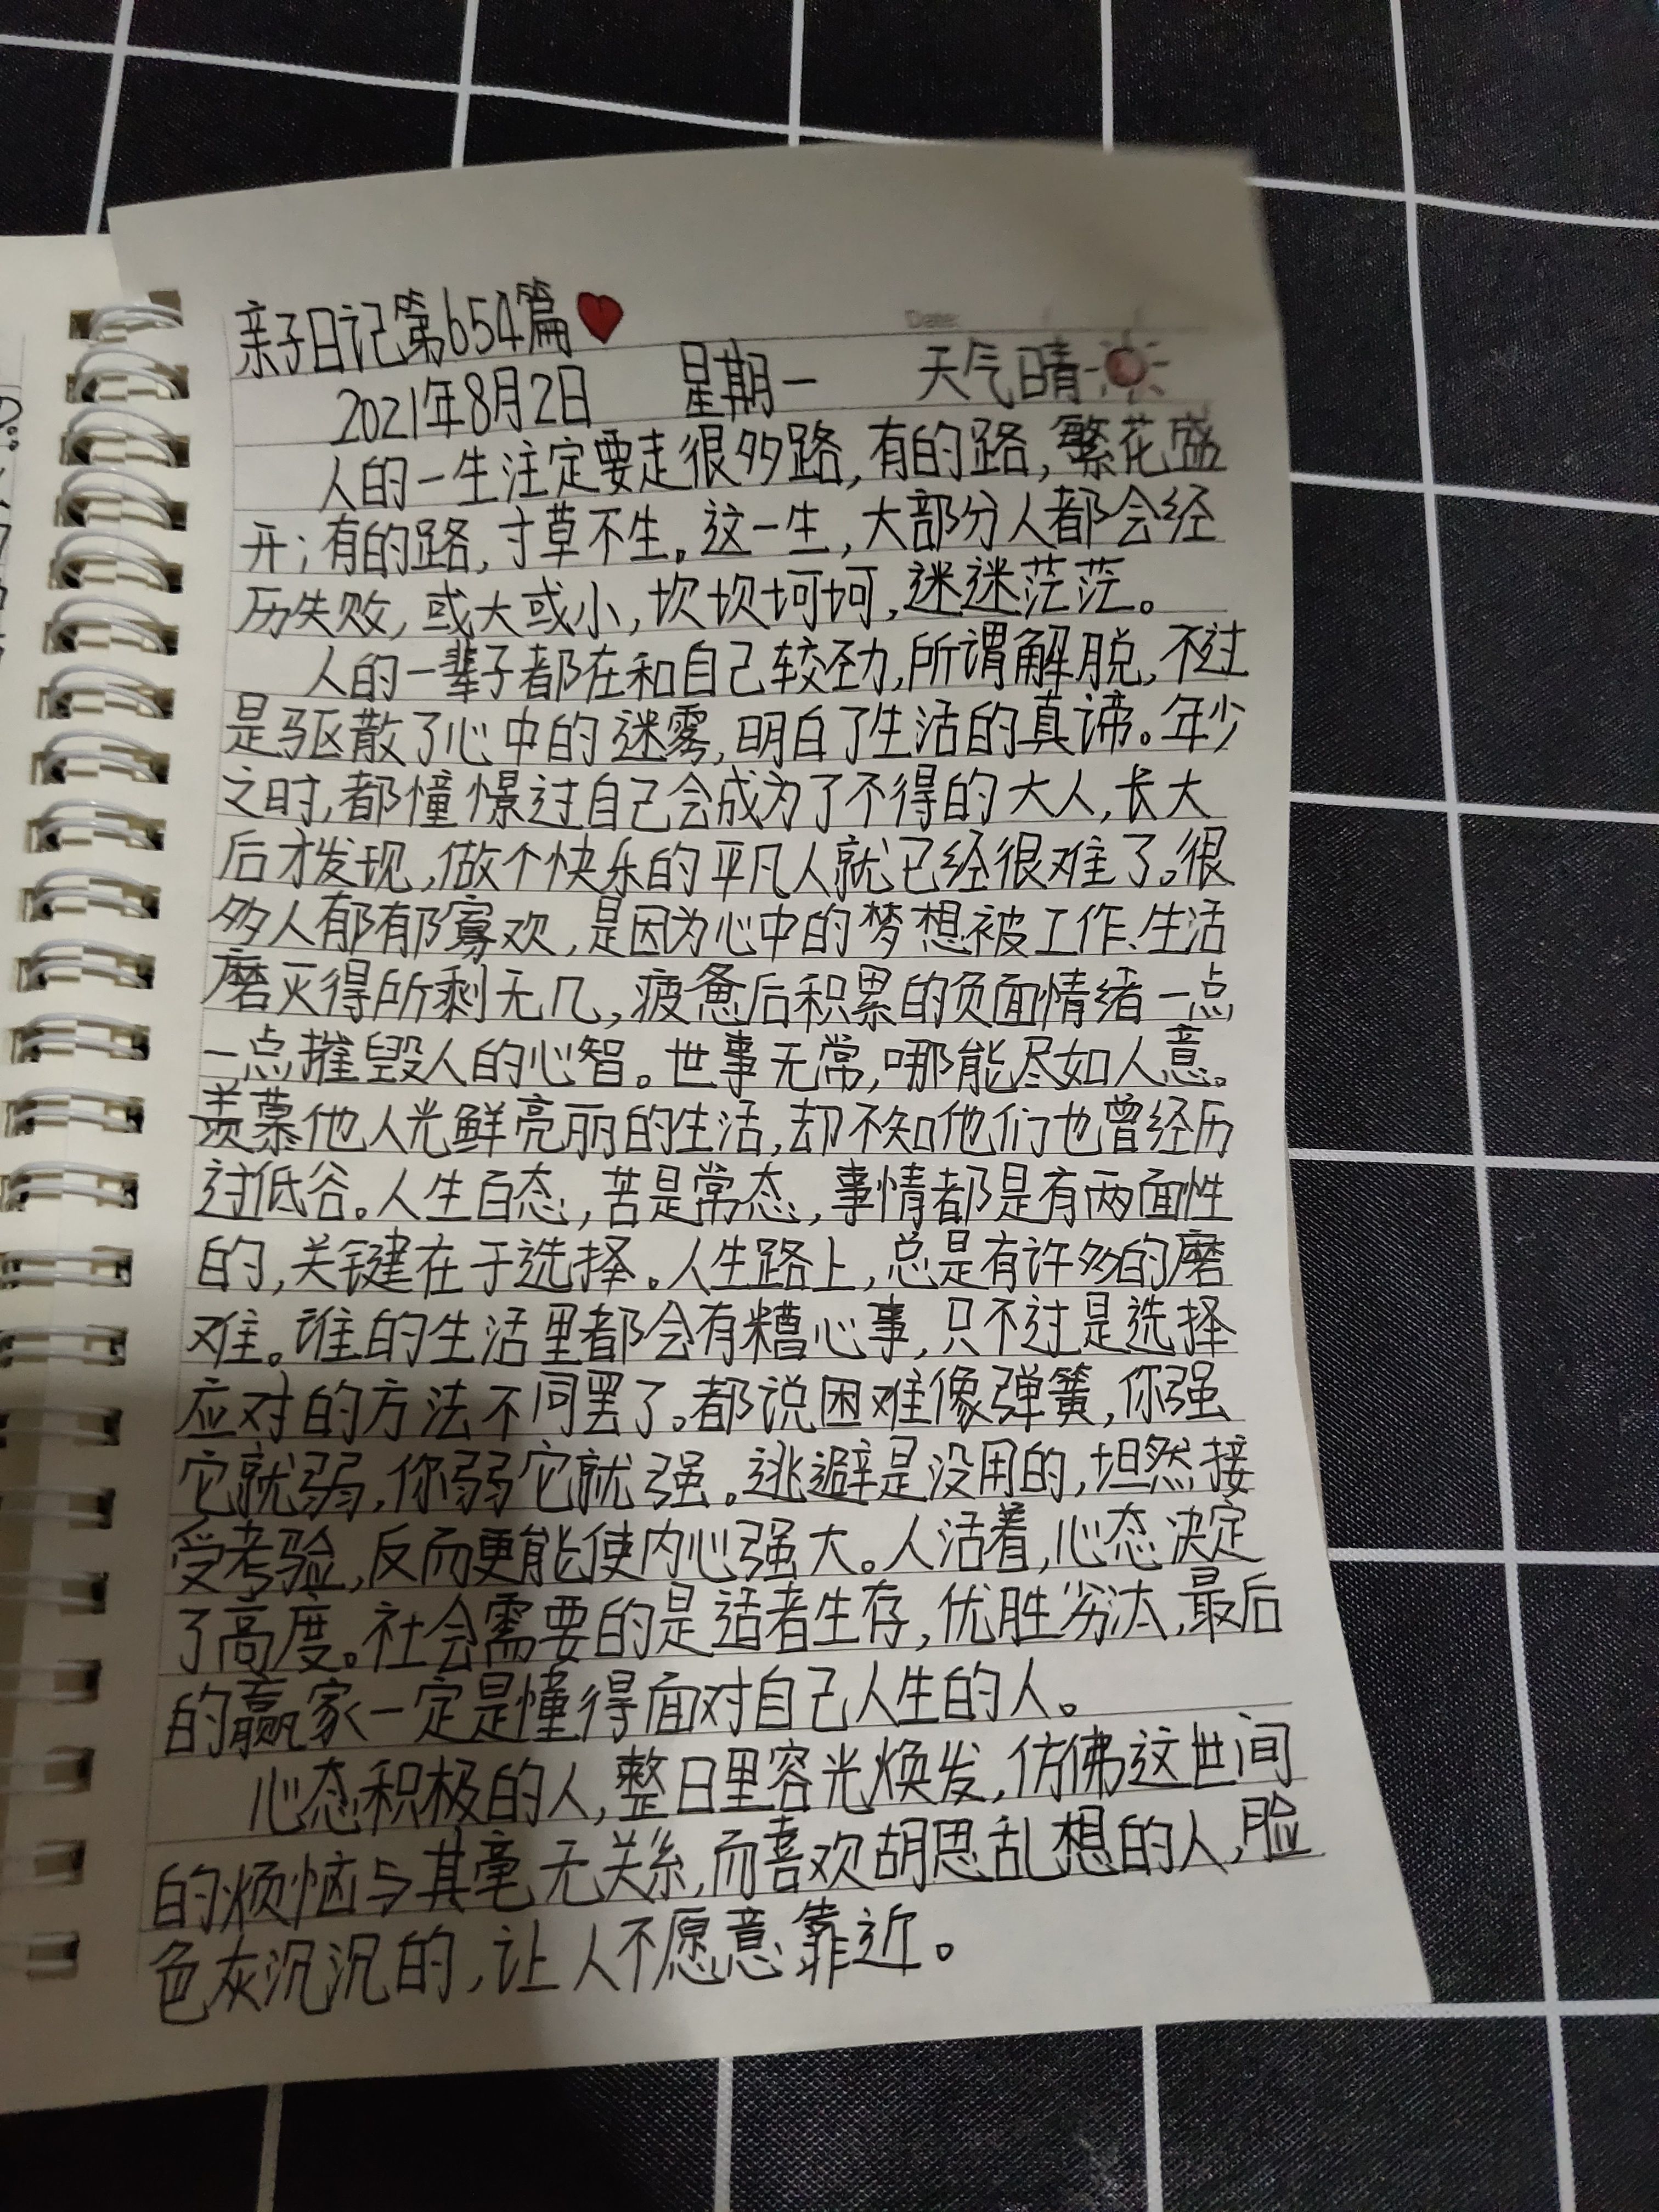 Date:
亲子日记第654篇
2021年8月2日 星期一 天气晴
人的一生注定要走很多路,有的路,繁花盛
开;有的路,寸草不生。这一生,大部分人都会经
历失败,或大或小,坎坝坷坷,迷迷茫茫。
人的一辈子都在和自己较劲,所谓解脱,不过
是驱散了心中的迷雾,明白了生活的真谛。年少
之时,都憧憬过自己会成为了不得的大人,长大
后才发现,做个快乐的平凡人就已经很难了。很
多人郁郁寡欢,是因为心中的梦想被工作、生活
磨灭得所剩无几,疲惫后积累的负面情绪一点
一点摧毁人的心智。世事无常,哪能尽如人意。
羡慕他人光鲜亮丽的生活,却不知他们也曾经历
过低谷。人生百态,苦是常态,事情都是有两面性
的,关键在于选择。人生路上,总是有许多的磨
难。谁的生活里都会有糟心事,只不过是选择
应对的方法不同罢了。都说困难像弹簧,你强
它就弱,你弱它就强。逃避是没用的,坦然接
受考验,反而更能使内心强大。人活着,心态决定
了高度。社会需要的是适者生存,优胜劣汰,最后
的赢家一定是懂得面对自己人生的人。
心态积极的人,整日里容光焕发,仿佛这世间
的烦恼与其毫无关系,而喜欢胡思乱想的人,脸
色灰沉沉的,让人不愿意靠近。